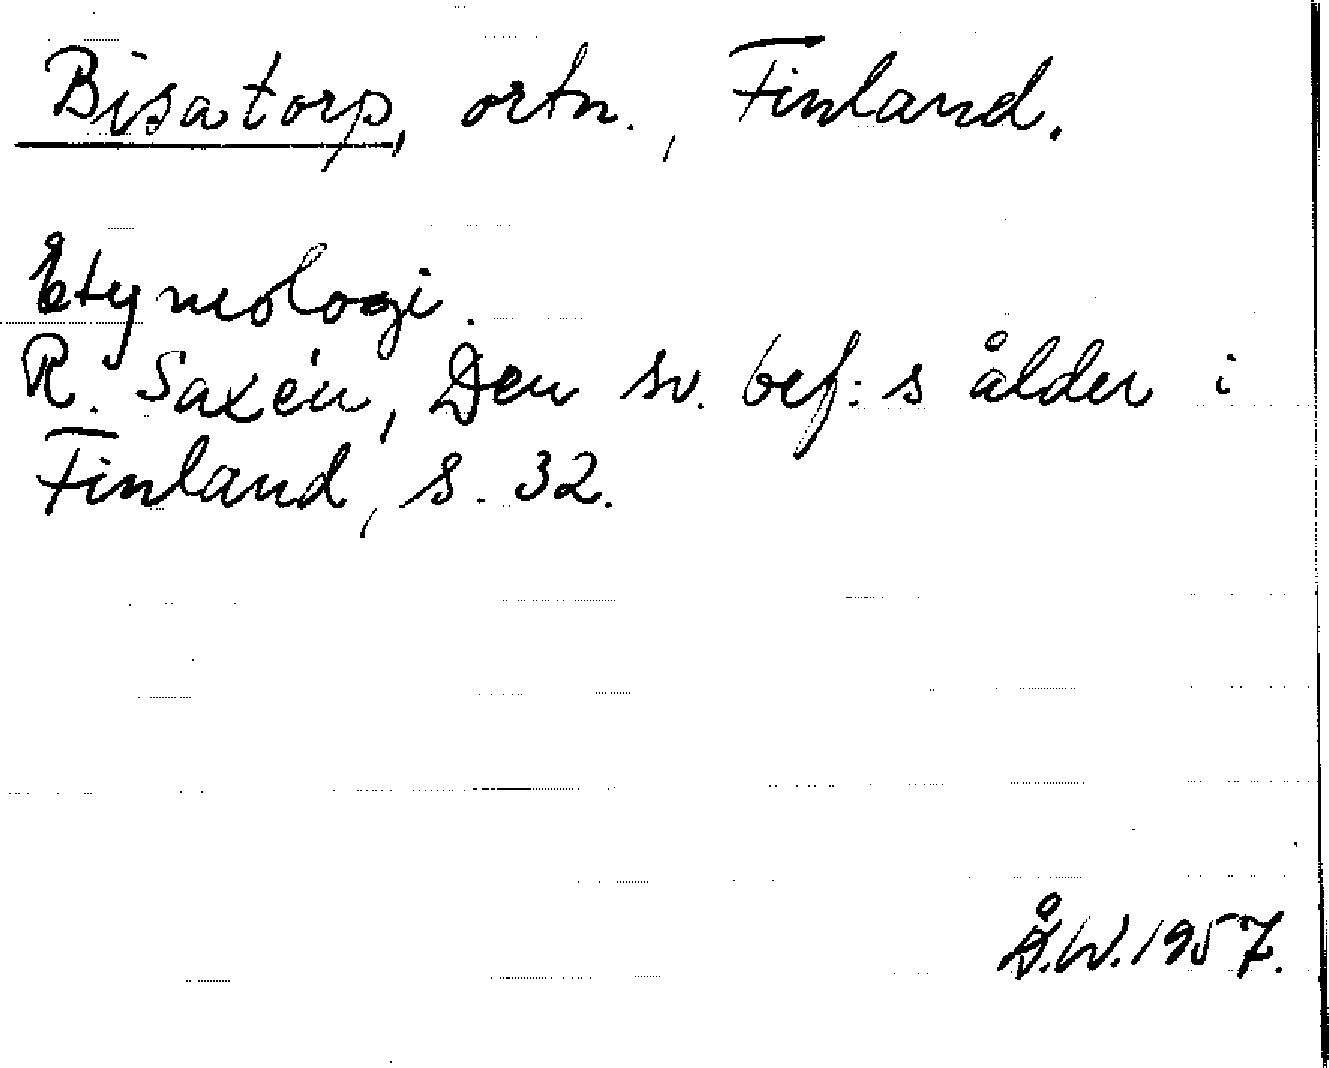 Bisatorp, ortn., Finland.
Etymologi.
R. Saxén, Den sv. bef:s ålder i
Finland, s. 32.
Å.W. 1957.